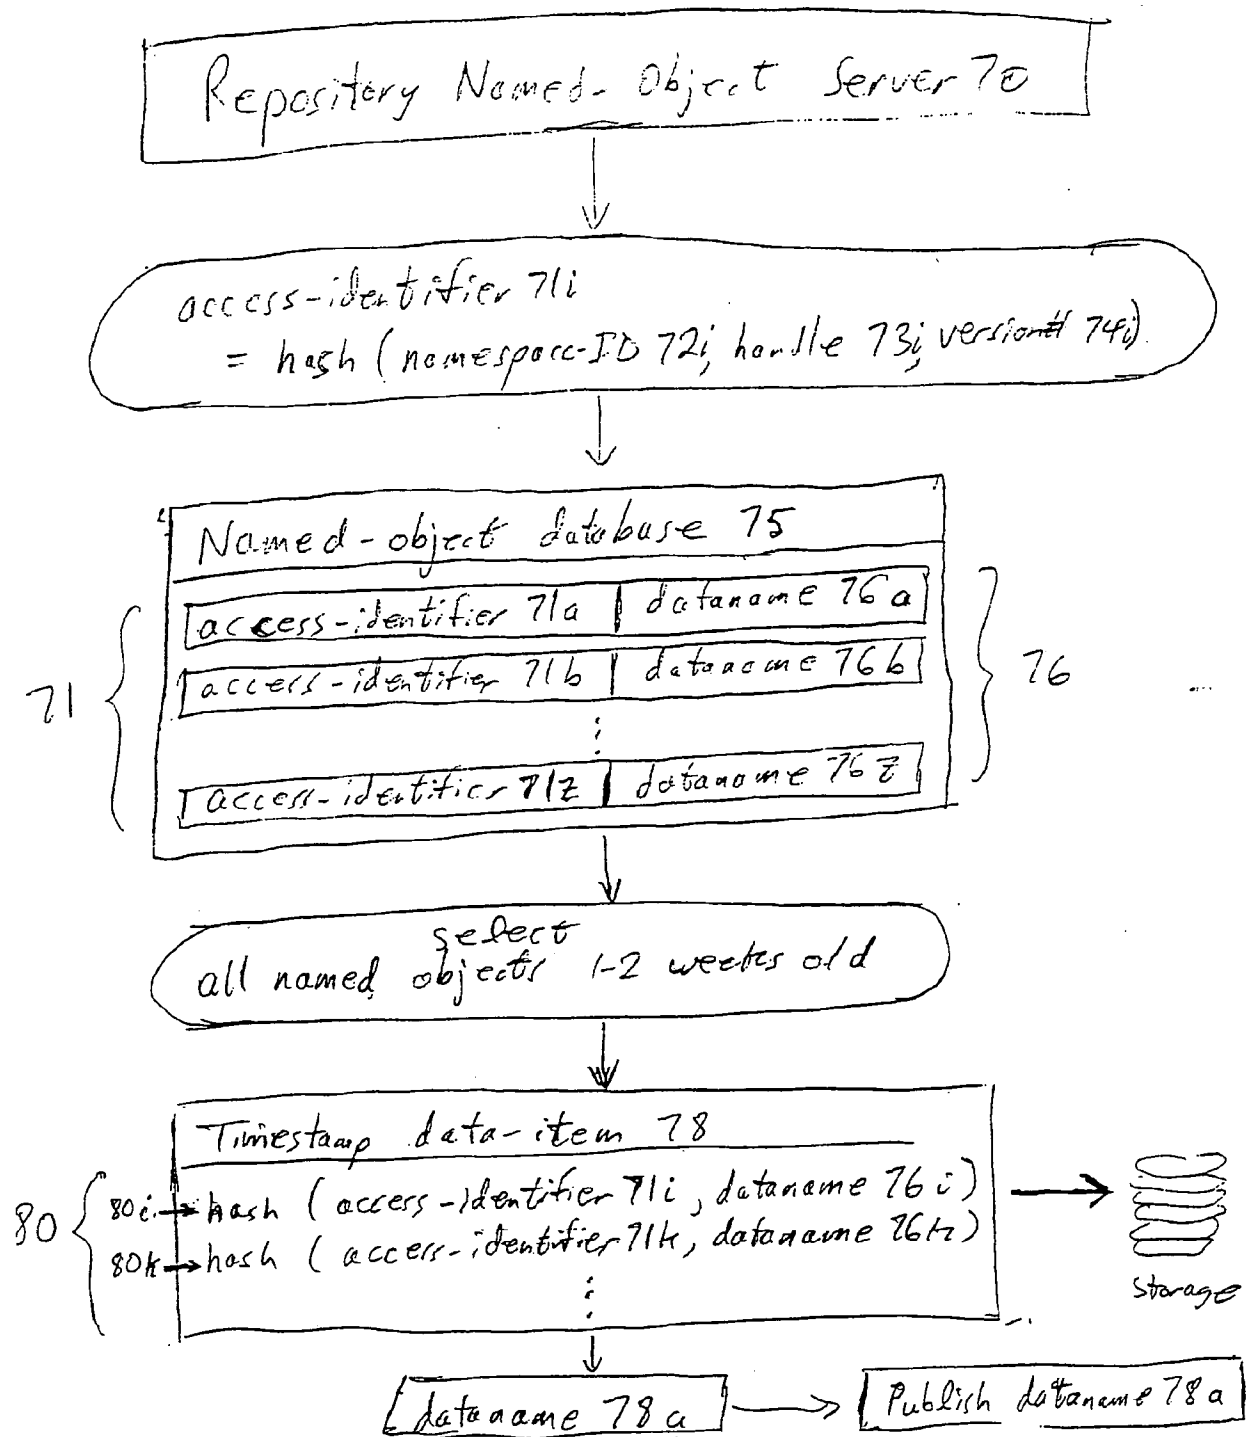 Repository Named-Object Server 70
access-identifier 71i
= hash (namespace-ID 72i, handle 73i, version# 74i)
Named-object database 75
access-identifier 71a | dataname 76a
access-identifier 71b | dataname 76b
71
76
access-identifier 71z | dataname 76z
select
all named objects 1-2 weeks old
Timestamp data-item 78
80
80i → hash (access-identifier 71i, dataname 76i)
80k → hash (access-identifier 71k, dataname 76k)
storage
dataname 78a
Publish dataname 78a